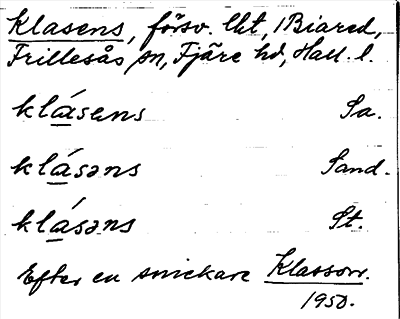 Klasens, försv. lht, i Biared,
Frillesås sn, Fjäre hd, Hall. l.
klásens Sa.
klásəns Sand.
klásəns St.
Efter en snickare Klasson.
1950.